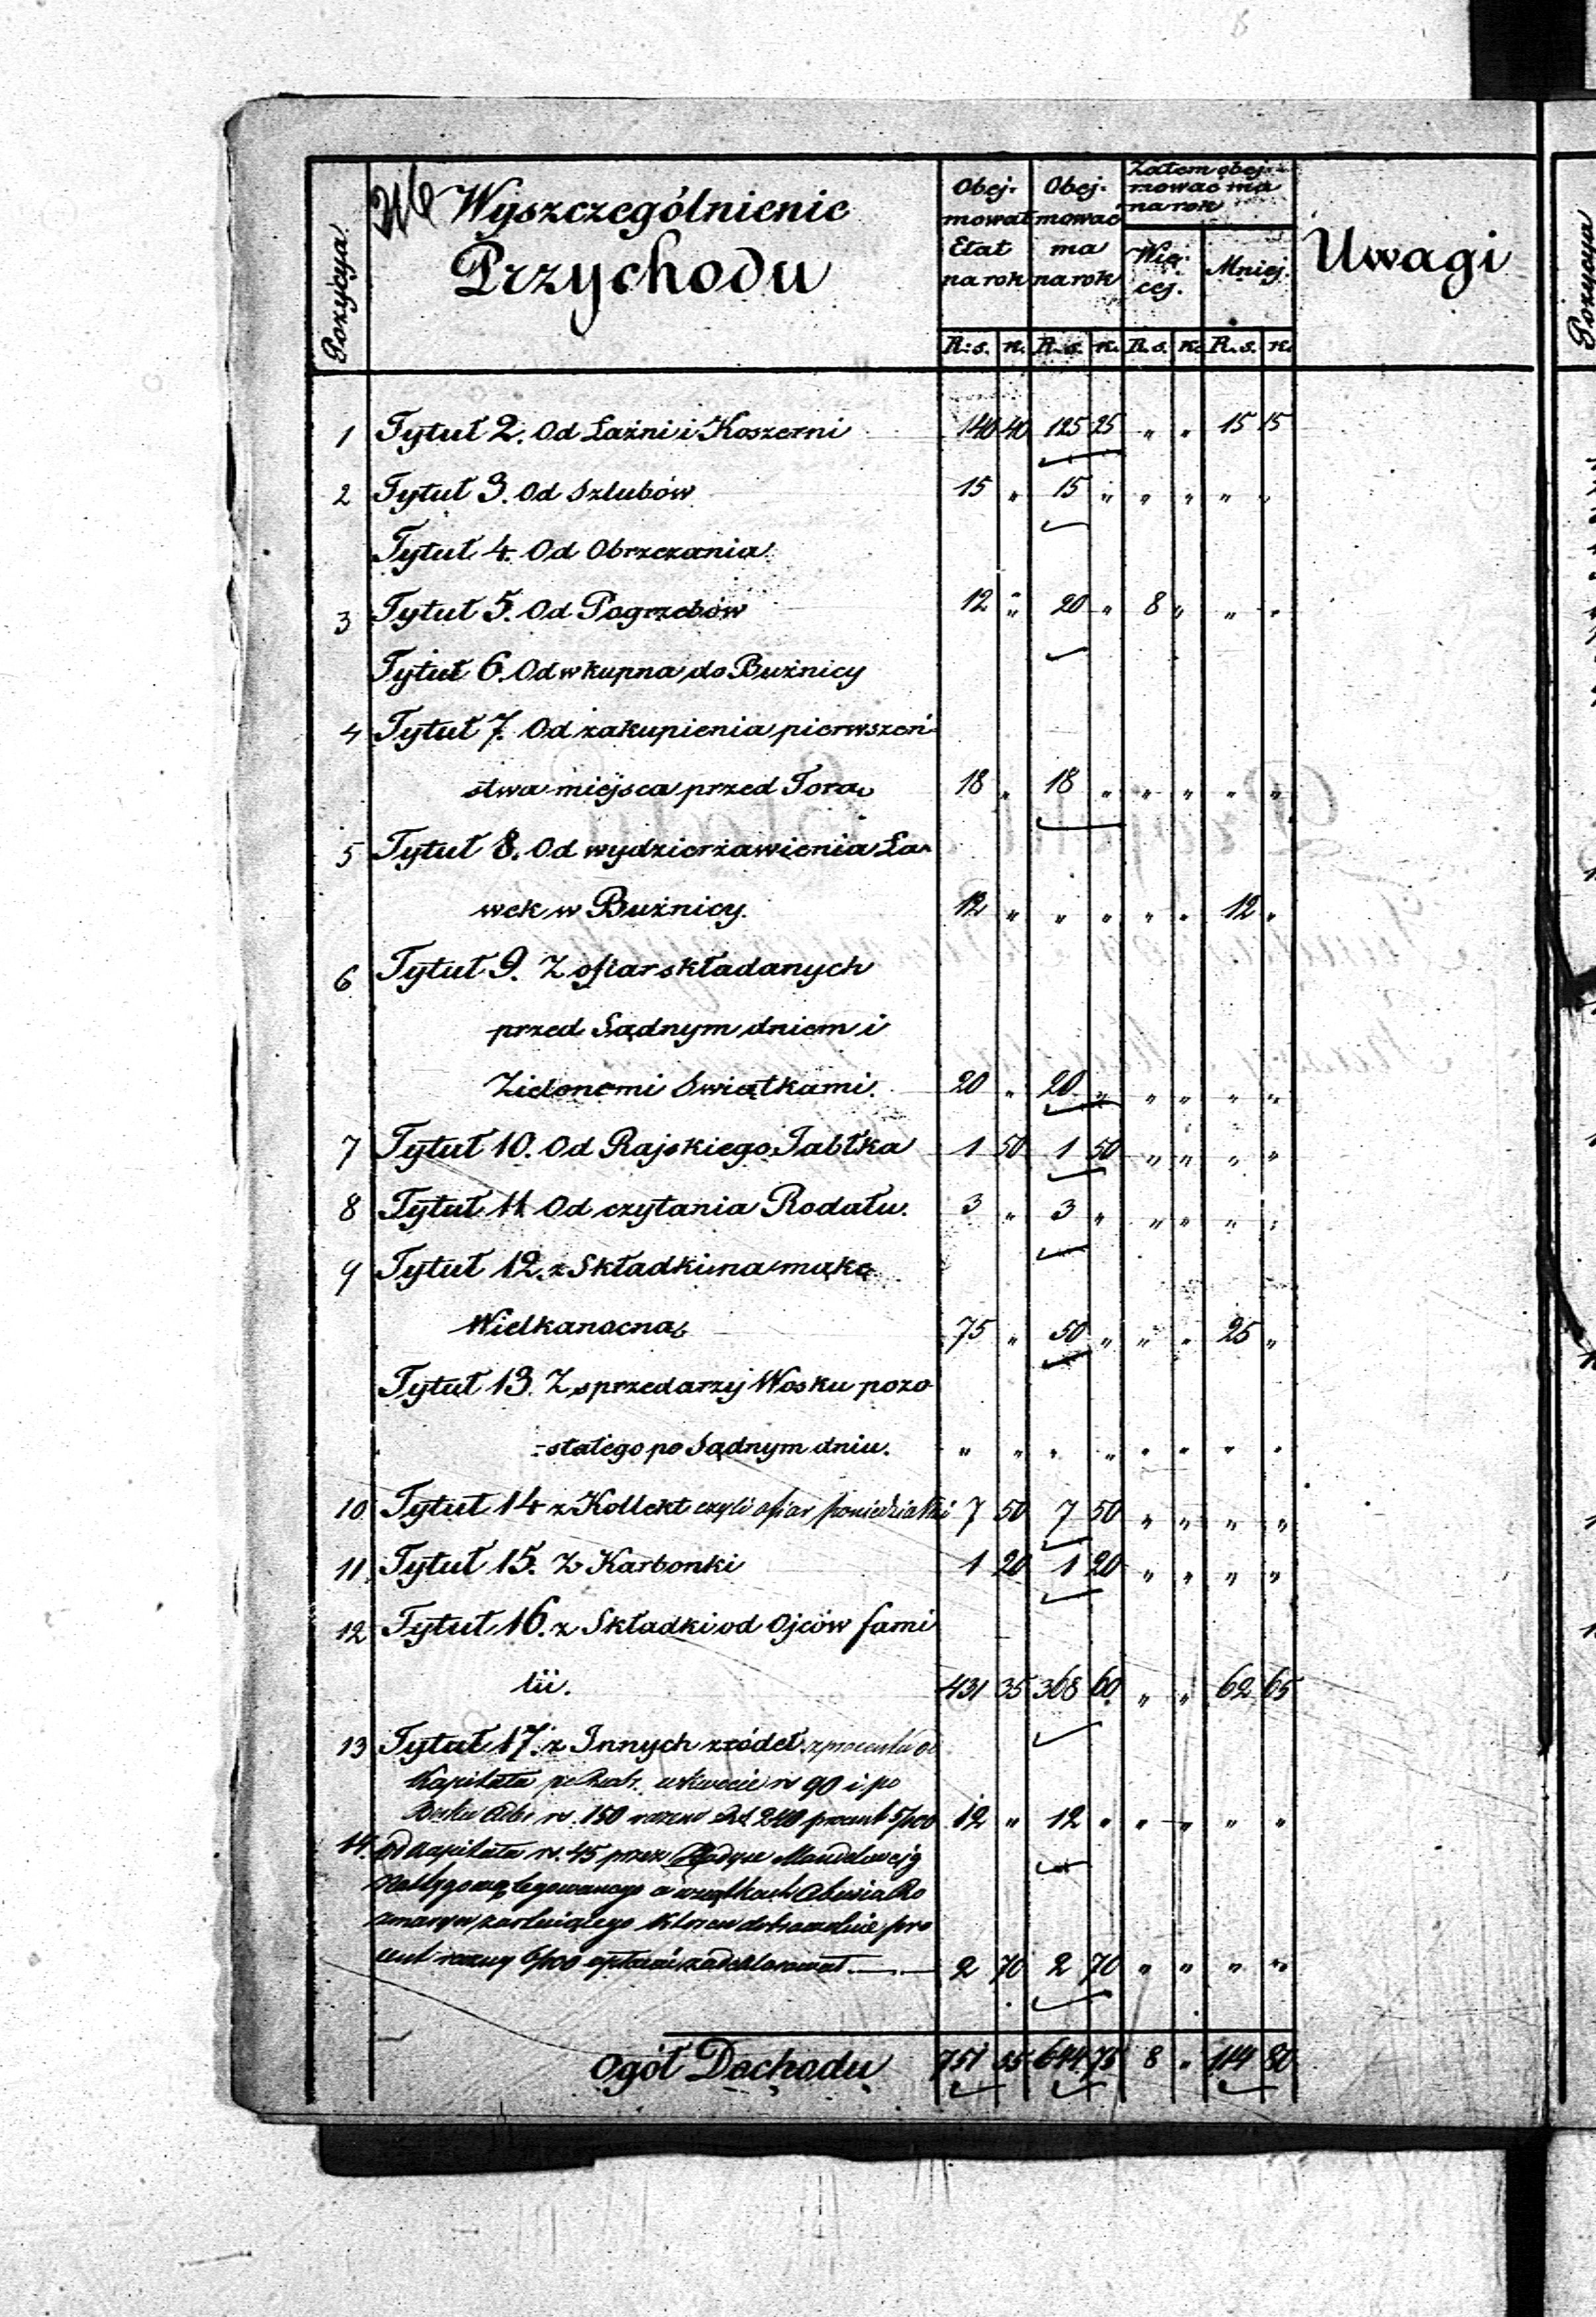 216
Pozycya
Wyszczególnienie
Przychodu
Obej-
mował
Etat
na rok
Obej-
mować
ma
na rok
Zatem obej-
mować ma
na rok
Wię-
cej.
Mniej.
Uwagi
R: s. k. R. s. k. R. s. k. R. s. k.
1 Tytuł 2. Od Łaźni i Koszerni 140 40 125 25 " " 15 15
2 Tytuł 3. Od Szlubów 15 " 15 " " " " "
Tytuł 4. Od Obrzezania
3 Tytuł 5. Od Pogrzebów 12 " 20 " 8 " " "
Tytuł 6. Od wkupna do Bużnicy
4 Tytuł 7. Od zakupienia pierwszeń-
stwa miejsca przed Torą 18 " 18 " " " " "
5 Tytuł 8. Od wydzierżawienia Ła-
wek w Bużnicy. 12 " " " " " 12 "
6 Tytuł 9. Z ofiar składanych
przed Sądnym dniem i
Zielonemi Swiątkami. 20 " 20 " " " " "
7 Tytuł 10. Od Rajskiego Jabłka 1 50 1 50 " " " "
8 Tytuł 11. Od czytania Rodału. 3 " 3 " " " " "
9 Tytuł 12. z Składki na mąkę
Wielkanocną 75 " 50 " " " 25 "
Tytuł 13. Z sprzedarzy Wosku pozo
-stałego po Sądnym dniu. " " " " " " " "
10 Tytuł 14 z Kollekt czyli ofiar poniedziałki 7 50 7 50 " " " "
11 Tytuł 15. Z Karbonki 1 20 1 20 " " " "
12 Tytuł 16. z Składki od Ojców fami
lii. 431 35 368 60 " " 62 65
13 Tytuł 17. z Innych zródeł z procentu od
Kapitału w kwocie rs 90 i po
rs. 150 razem 240 procent 5/100 12 " 12 " " " " "
14. Od Kapitału rs. 45 przez
legowanego a
zmarłego
cent 6/100 zadeklarował 2 70 2 70 " " " "
Ogół Dochodu 751 35 644 75 8 " 114 80
Pozycya